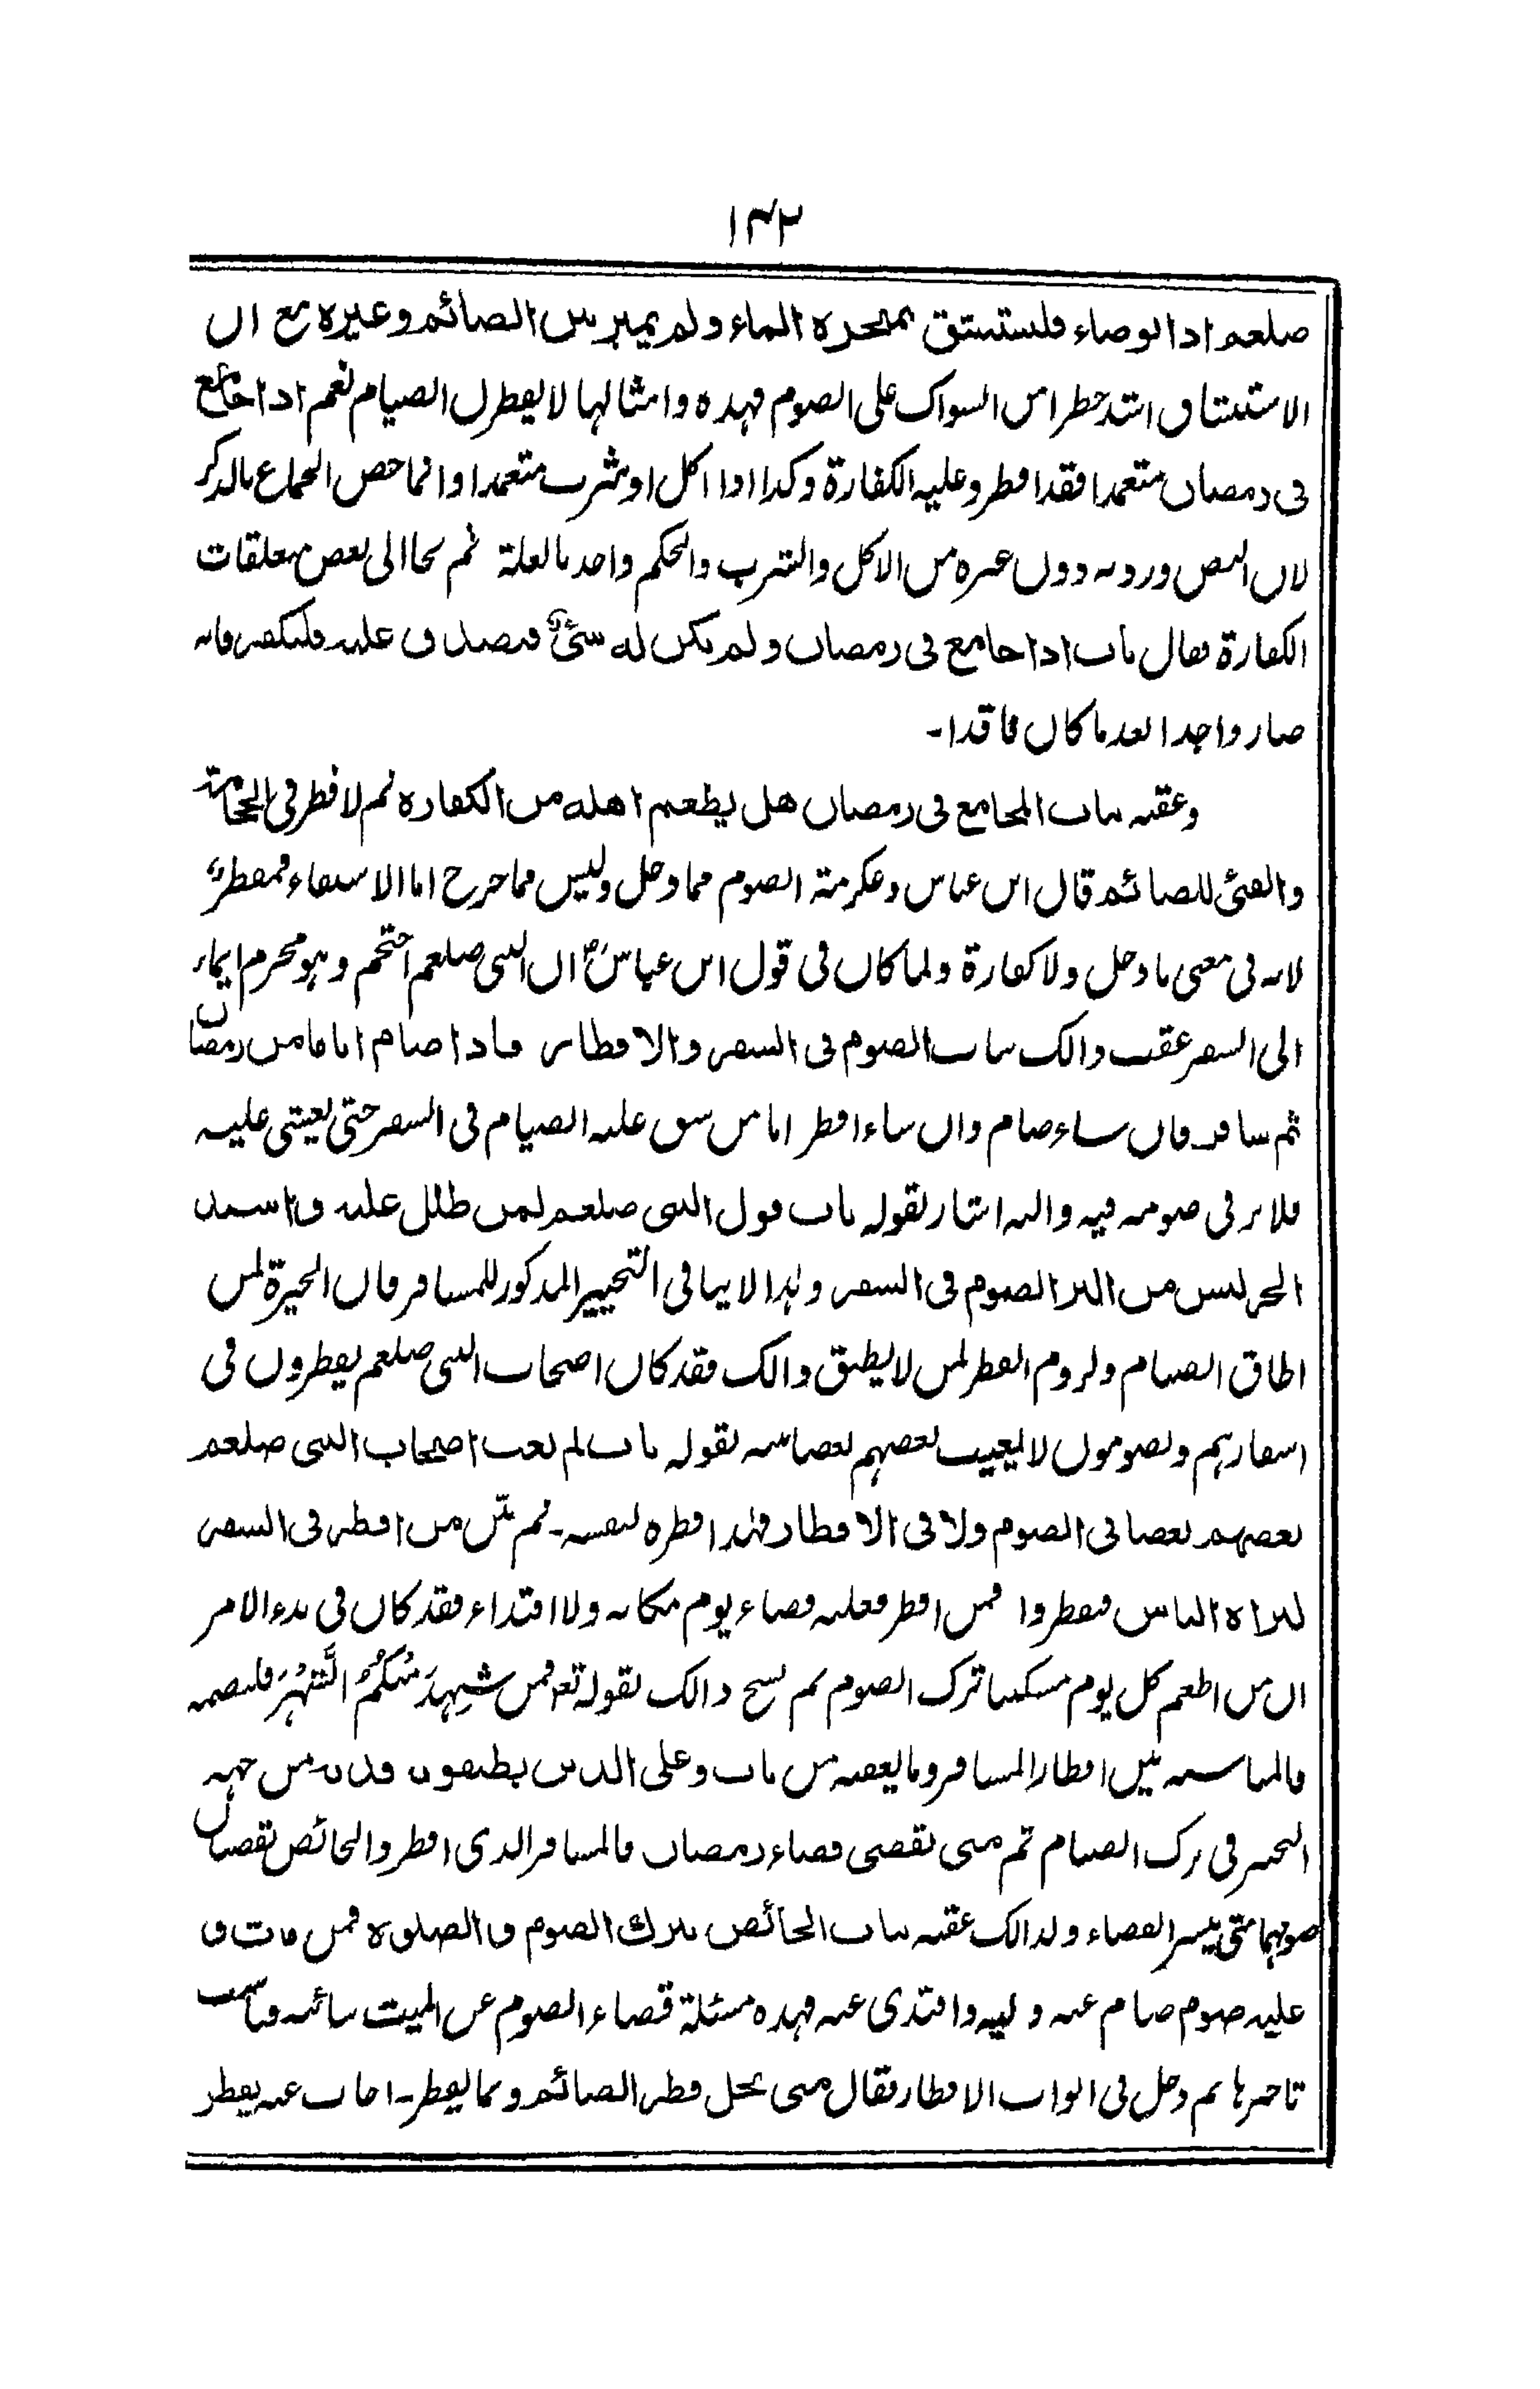 ۱۴۲
صلعم اذا توضاء فليستنشق بمنخره الماء ولم يميز بين الصائم وغيره مع ان
الاستنشاق اشد خطرا من السواك على الصوم فهذه وامثالها لا يفطرن الصيام نعم اذا جامع
فى رمضان متعمدا فقد افطر وعليه الكفارة وكذا اذا اكل او شرب متعمدا وانما خص الجماع بالذكر
لان النص ورد به دون غيره من الاكل والشرب والحكم واحد بالعلة ثم نحا الى بعض متعلقات
الكفارة فقال باب اذا جامع فى رمضان ولم يكن له شئ فتصدق عليه فليكفر فانه
صار واجدا بعد ما كان فاقدا۔
وعقبه بباب المجامع فى رمضان هل يطعم اهله من الكفاره ثم لا فطر فى الحجامة
والقئ للصائم قال ابن عباس وعكرمة الصوم مما دخل وليس مما خرج اما الاستقاء فمفطر
لانه فى معنى ما دخل ولا كفارة ولما كان فى قول ابن عباسؓ ان النبى صلعم احتجم وهو محرم ايماء
الى السفر عقب ذالك بباب الصوم فى السفر والافطار فاذا صام اياما من رمضان
ثم سافر فان شاء صام وان شاء افطر اما من شق عليه الصيام فى السفر حتى يغشى عليه
فلا بر فى صومه فيه واليه اشار بقوله باب قول النبى صلعم لمن ظلل عليه واشتد
الحر ليس من البر الصوم فى السفر وهذا لا ينافى التخيير المذكور للمسافر فان الخيرة لمن
اطاق الصيام ولزوم الفطر لمن لا يطيق ذالك فقد كان اصحاب النبى صلعم يفطرون فى
اسفارهم ويصومون لا يعيب بعضهم بعضا بقوله باب لم يعب اصحاب النبى صلعم
بعضهم بعضا فى الصوم ولا فى الافطار فهذا فطره لنفسه۔ ثم بين من افطر فى السفر
ليراه الناس فيفطروا فمن افطر فعليه قضاء يوم مكانه ولا افتداء فقد كان فى بدء الامر
ان من اطعم كل يوم مسكينا ترك الصوم ثم نسخ ذالك لقوله تع فمن شَهِدَ مِنْكُمُ الشَّهْرَ فليصمه
فالمناسبة بين افطار المسافر وما يعقبه من باب وعلى الذين يطيقونه فدية من جهة
التخيير فى ترك الصيام ثم متى يقضى قضاء رمضان فالمسافر الذى افطر والحائض يقضيان
صومهما متى تيسر القضاء ولذالك عقبه بباب الحائض تترك الصوم والصلوة فمن مات و
عليه صوم صام عنه وليه وافتدى عنه فهذه مسئلة قضاء الصوم عن الميت
تاخيرها ثم دخل فى ابواب الافطار فقال متى يحل فطر الصائم وبما يفطر۔ اجاب عنه يفطر